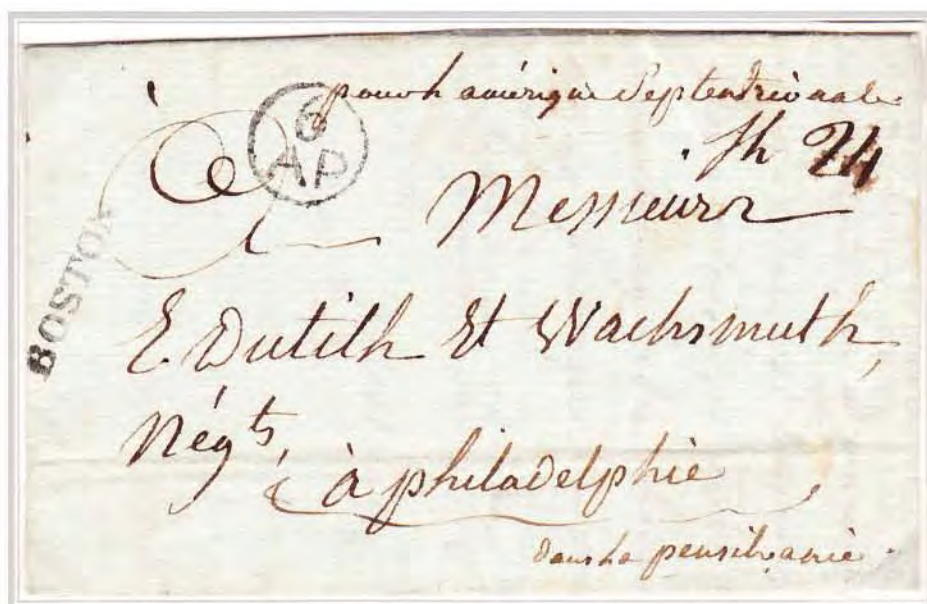 pour l'amérique Septentrionale
6
AP
Sh 24
BOSTON
A Messieurs
E Dutilh Et Wachsmuth,
Négts,
à philadelphie
dans la pensilvanie.